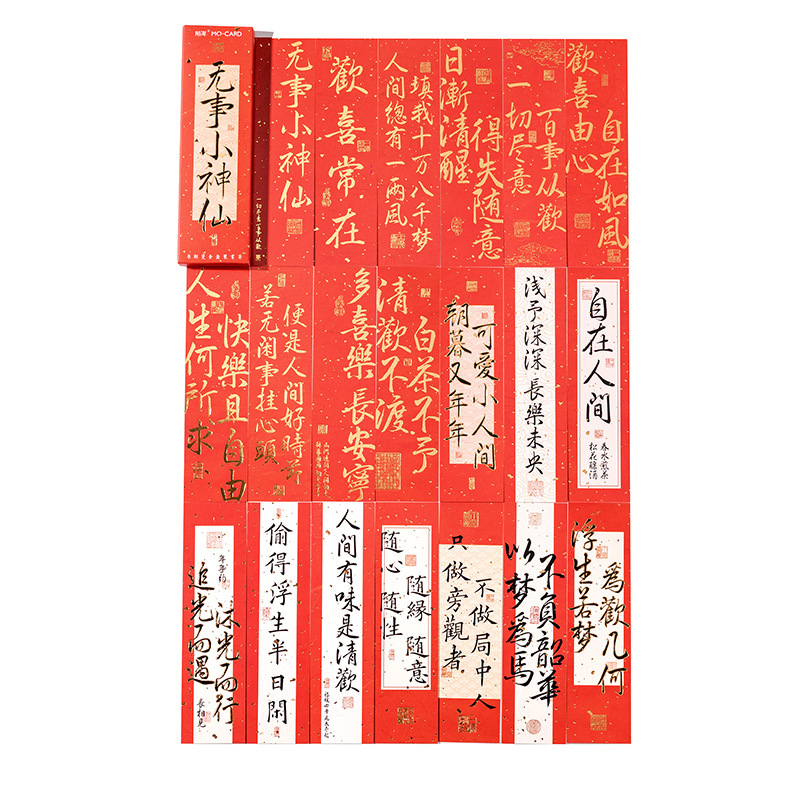 MO·CARD
无事小神仙
无事小神仙
歡喜常在
填我十万八千梦
人间總有一两風
日漸清醒
得失随意
百事从歡
一切尽意
歡喜由心
自在如風
快樂且自由
人生何所求
若无闲事挂心頭
便是人间好時节
多喜樂長安寧
白茶不予
清歡不渡
可爱小人间
朝暮又年年
浅予深深
長樂未央
自在人间
春水煎茶
松花釀酒
追光而遇
沐光而行
長相見
偷得浮生半日閑
人间有味是清歡
随心随性
随緣随意
不做局中人
只做旁觀者
以梦為馬
不負韶華
浮生若梦
為歡几何